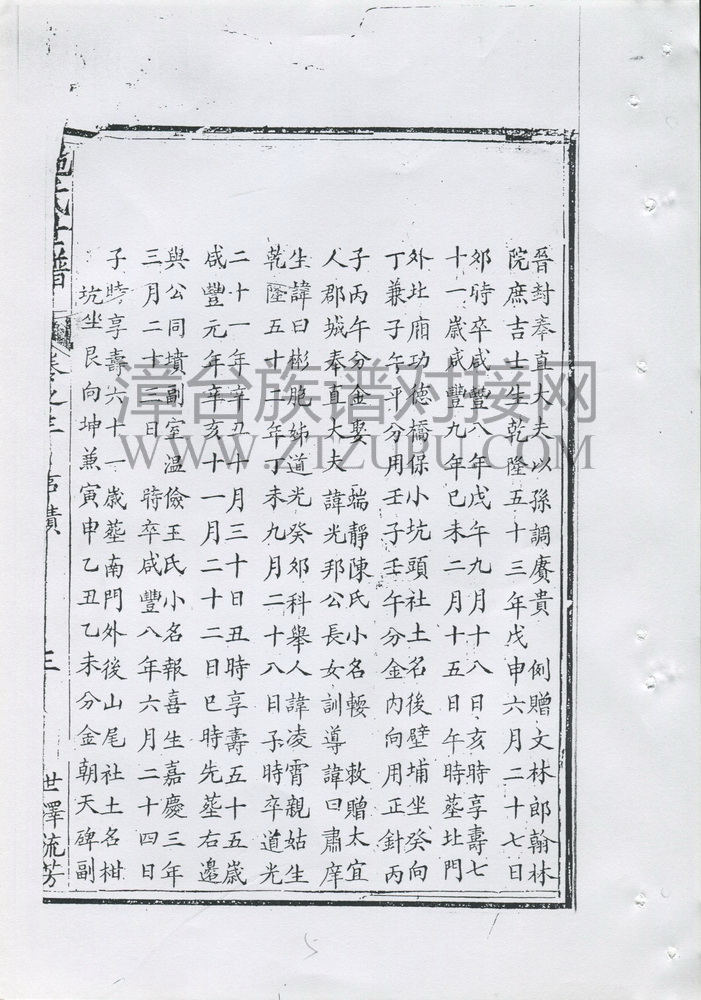 晉封奉直大夫以孫調賡貴　例贈文林郎翰林
院庶吉士生乾隆五十三年戊申六月二十七日
卯時卒咸豐八年戊午九月十八日亥時享壽七
十一歲咸豐九年已未二月十五日午時塟北門
外北廂功德橋保小坑頭社土名後壁埔坐癸向
丁兼子午平分用壬子壬午分金內向用正針丙
子丙午分金娶　端靜陳氏小名轅　敕贈太宜
人郡城奉直大夫諱光邦公長女訓導諱曰肅庠
生諱曰彬胞姊道光癸卯科舉人諱凌霄親姑生
乾隆五十二年丁未九月二十八日子時卒道光
二十一年辛丑十月三十日丑時享壽五十五歲
咸豐元年辛亥十一月二十二日巳時先塟右邊
與公同墳副室溫儉王氏小名報喜生嘉慶三年
三月二十三日　時卒咸豐八年六月二十四日
子時享壽六十一歲塟南門外後山尾社土名柑
坑坐艮向坤兼寅申乙丑乙未分金朝天碑副
施氏世譜　卷之三　事蹟　三　世澤流芳
漳台族谱对接网
WWW.ZTZUPU.COM
5